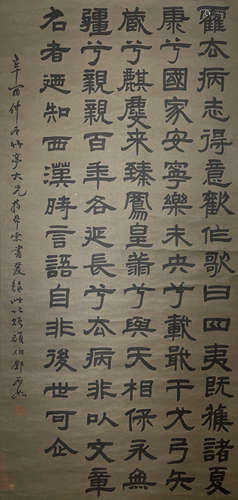 霍去病志得意歡作歌曰四夷既獲諸夏
康兮國家安寧樂未央兮載戢干戈弓矢
藏兮麒麐來臻鳳皇翔兮與天相保永無
疆兮親親百年各延長兮去病非以文章
名者迺知西漢時言語自非後世可企
辛酉仲 大兄 索書 頑伯鄧石如